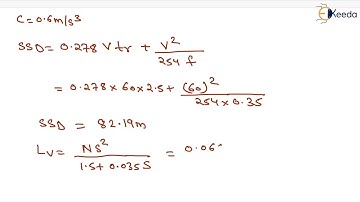 Ekeeda
C = 0.6 m/s³
SSD = 0.278 V tr + V² / 254 f
= 0.278 × 60 × 2.5 + (60)² / 254 × 0.35
SSD = 82.19 m
Lv = NS² / 1.5 + 0.035 S = 0.06